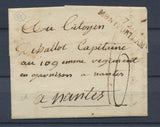 Au Citoyen
Mallot Capitaine
au 109 mme regiment
en garnison a nantes
a nantes